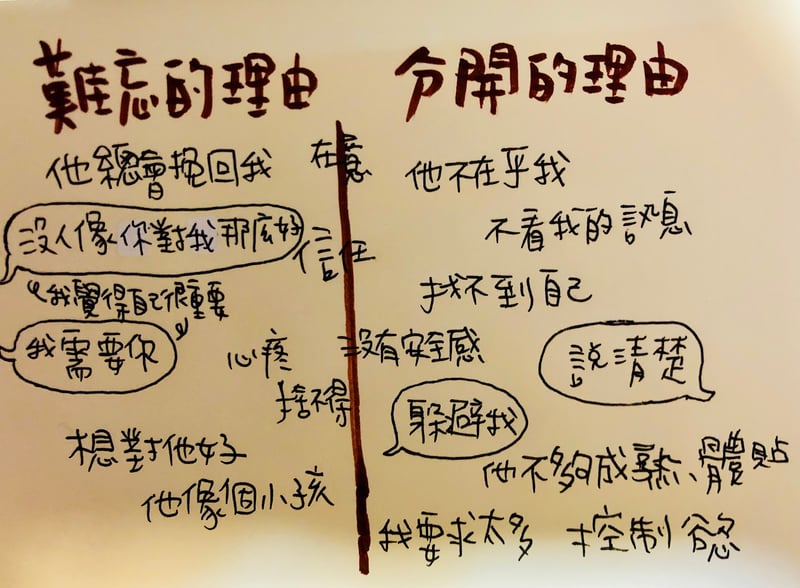 難忘的理由
他總會挽回我
在意
沒人像你對我那么好
信任
我覺得自己很重要
我需要你
心疼
捨不得
想對他好
他像個小孩
分開的理由
他不在乎我
不看我的訊息
找不到自己
沒有安全感
說清楚
躲避我
他不夠成熟、體貼
我要求太多
控制慾